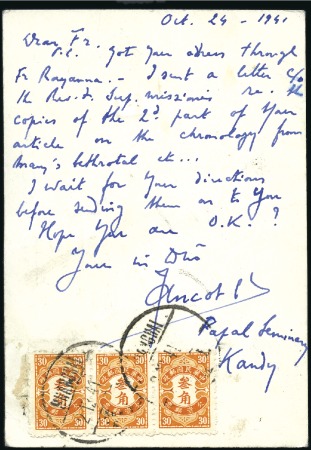 Oct. 24 - 1941
Dear Fr.
P.C. Got your adress through
Fr Rayanna. - I sent a letter c/o
the Rev. F. Sup. missionis re. the
copies of the 2d part of your
article on the chronology from
Mary's bethrotal etc...
I wait for your directions
before sending them on to you
Hope you are O.K. ?
Yours in Dno
Papal Seminary
Kandy
30 30 30 30 30 30
叁角 叁角 叁角
30 30 30 30 30 30